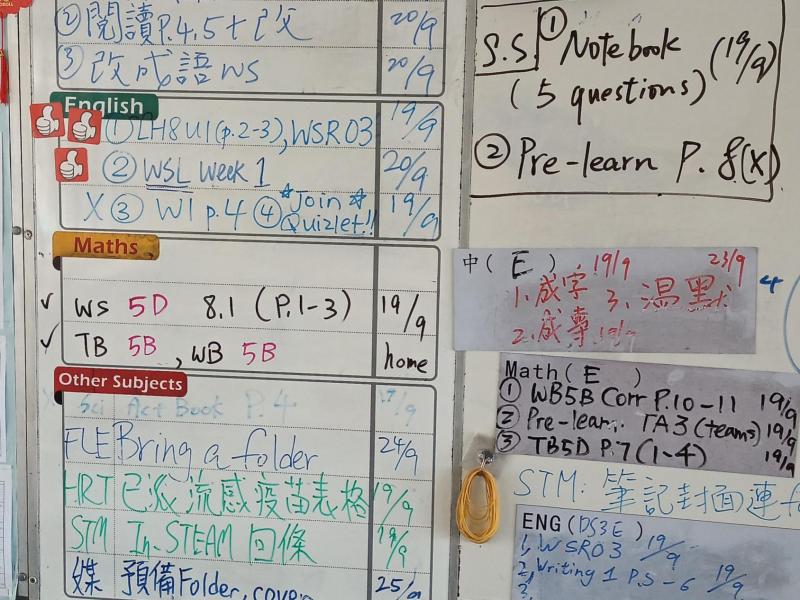 ② 閱讀P.4,5+改 20/9
③ 改成語ws 20/9
English
① LH8U1(p.2-3), WSR03 19/9
② WSL Week 1 20/9
X ③ W1 p.4 ④ Join Quizlet!! 19/9
Maths
✓ WS 5D 8.1 (P.1-3) 19/9
✓ TB 5B, WB 5B home
Other Subjects
Sci Act Book P.4 /9
FLE Bring a folder 24/9
HRT 已派流感疫苗表格 19/9
STM In-STEAM 回條 19/9
媒 預備Folder, cover 25/9
S.S ① Notebook (19/9)
(5 questions)
② Pre-learn P. 8(X)
中( E ) 19/9 23/9
1. 成字 3. 溫默
2. 19/9
4
Math( E )
① WB5B Corr P.10-11 19/9
② Pre-learn. TA3 (teams) 19/9
③ TB5D P.7 (1-4) 19/9
STM: 筆記封面連
ENG(DS3E)
1, WSR03 19/9
2, Writing 1 P.5-6 19/9
3,